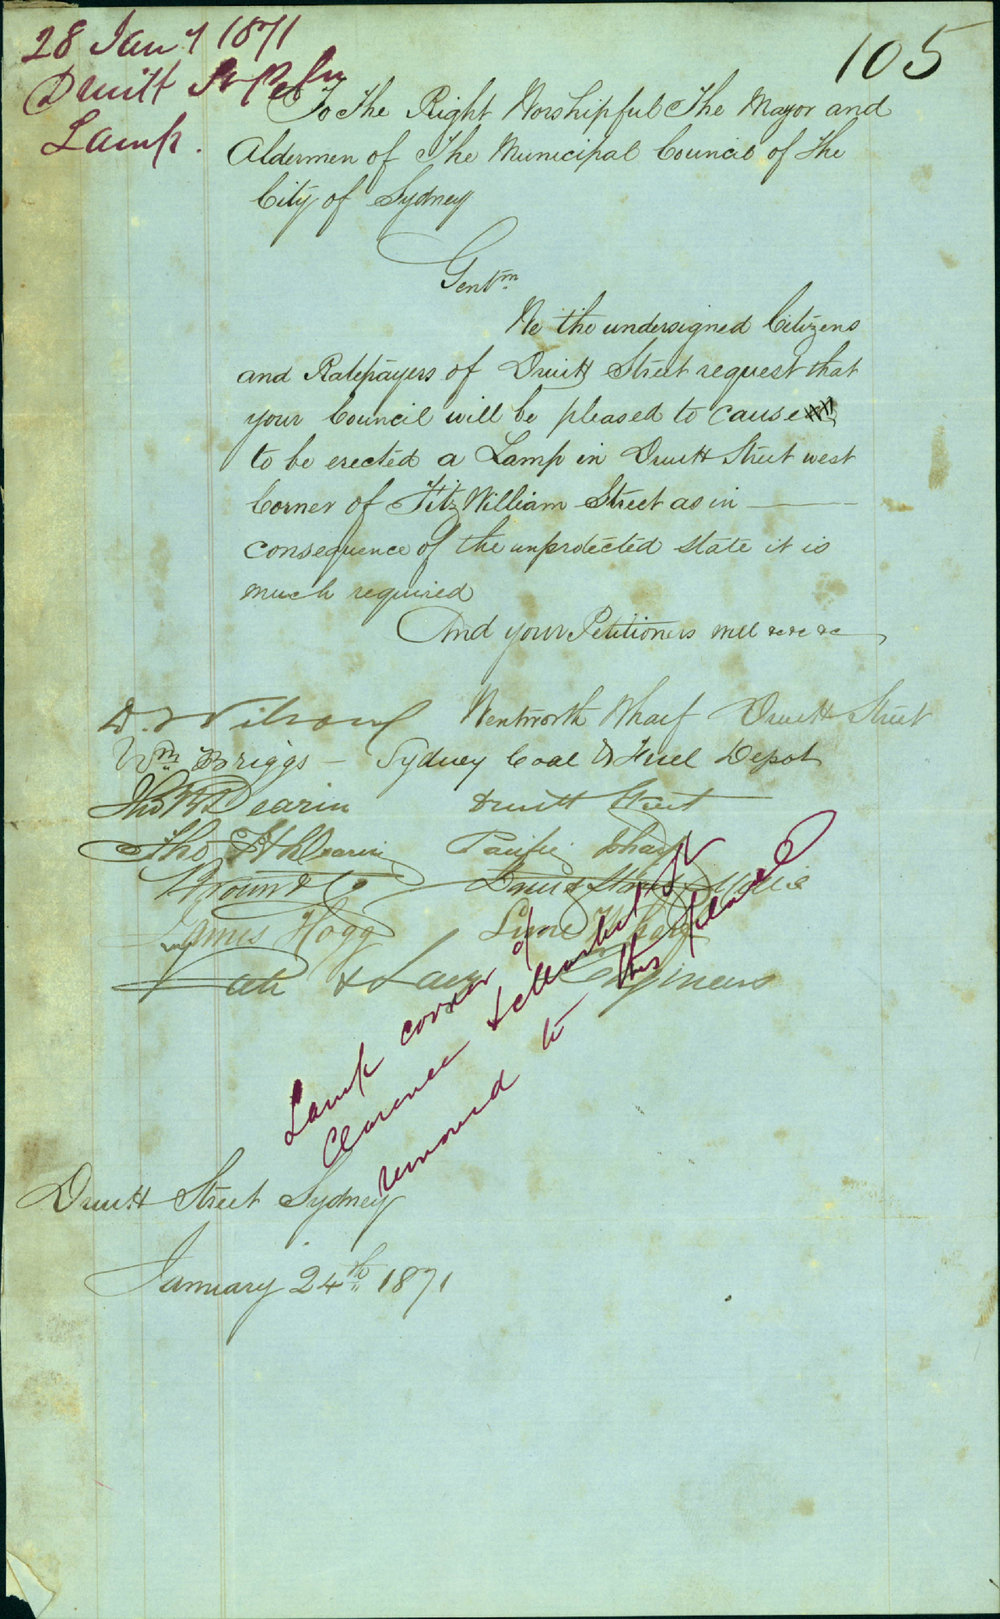 28 Jany 1871
Druitt St Petn
Lamp.
105
To The Right Worshipful The Mayor and
Aldermen of The Municipal Council of The
City of Sydney
Gentm
We the undersigned Citizens
and Ratepayers of Druitt Street request that
your Council will be pleased to cause
to be erected a Lamp in Druitt Street west
Corner of FitzWilliam Street as in
consequence of the unprotected state it is
much required
And your Petitioners will &c &c &c
D. Wilson Wentworth Wharf Druitt Street
Wm Briggs - Sydney Coal & Fuel Depot
Thos Dearin Druitt Street
Thos Dearin Pacific Wharf
& Co Druitt Street
James Hogg Lime Wharf
& Engineers
Lamp corner of
Clarence & Market St
removed to this place
Druitt Street Sydney
January 24th 1871